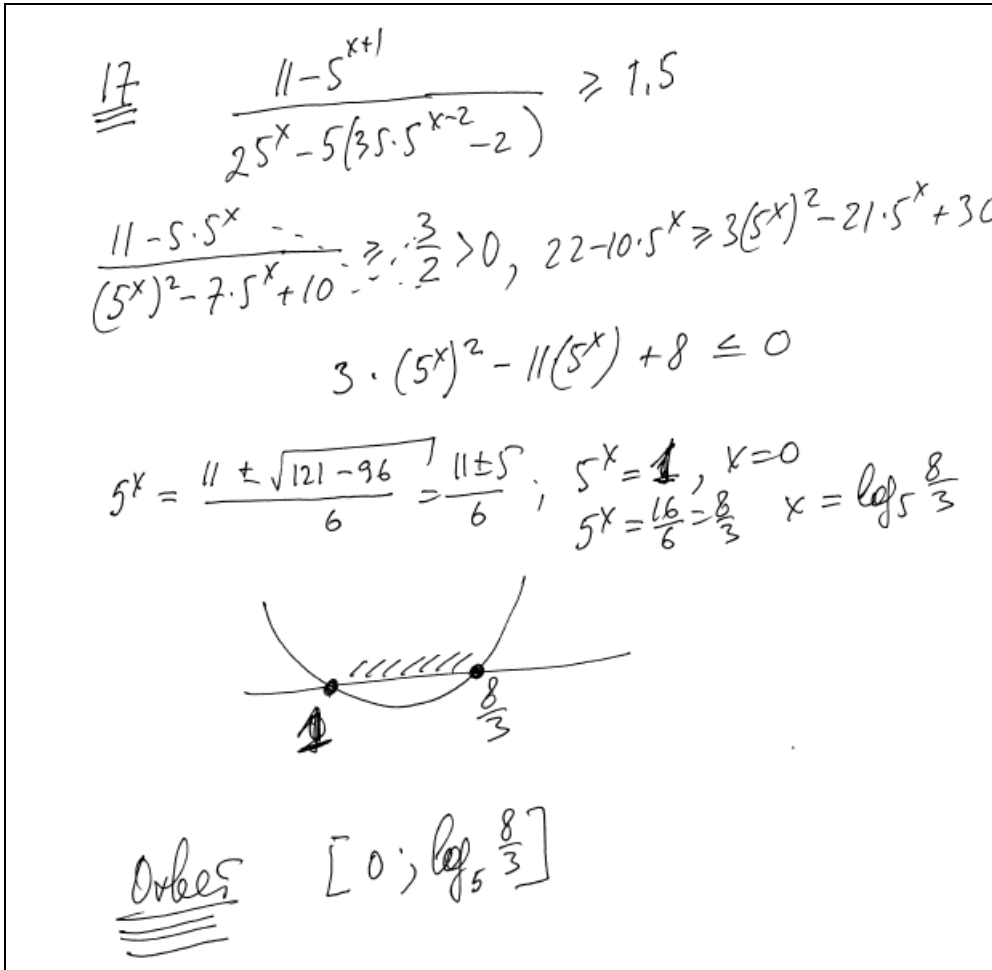 17 (11-5^(x+1))/(25^x-5(35·5^(x-2)-2)) ≥ 1,5
(11-5·5^x)/((5^x)^2-7·5^x+10) ≥ 3/2 >0, 22-10·5^x ≥ 3(5^x)^2-21·5^x+30
3·(5^x)^2-11(5^x)+8 ≤ 0
5^x = (11±√(121-96))/6 = (11±5)/6; 5^x=1, x=0
5^x=16/6=8/3 x=log_5 8/3
1 8/3
Ответ [0; log_5 8/3]